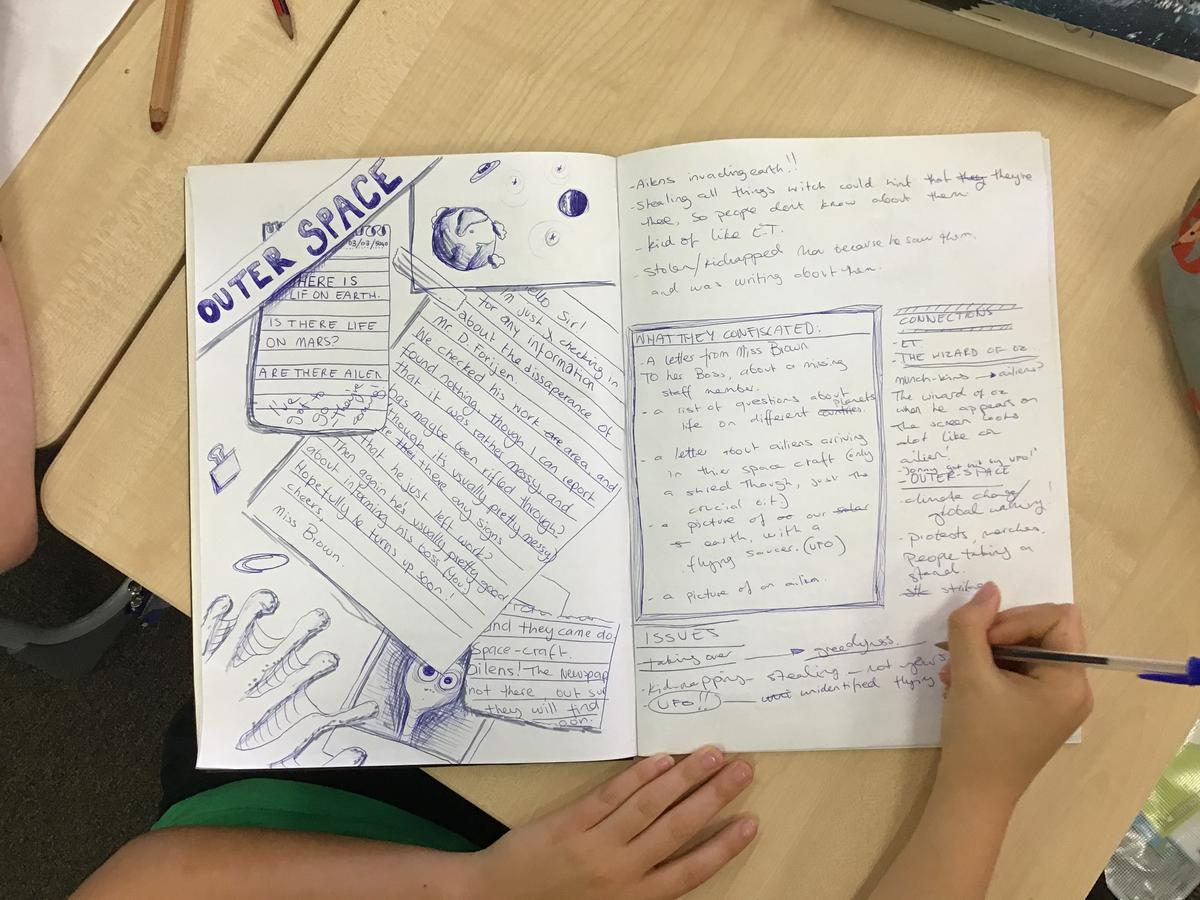 OUTER SPACE
03/03/3040
THERE IS
LIF ON EARTH.
IS THERE LIFE
ON MARS?
ARE THERE AILEN
I've
got to
go, they're
coming!
Hello Sir!
I'm just checking in
for any information
about the dissaperance of
Mr D. Forijen.
We checked his work are area and
found nothing, though I can report
that it was rather messy and
has maybe been rifled through?
though it's usually pretty messy!
Are they there any signs
that he just left work?
Then again he's usually pretty good
about informing his boss (you!)
Hopefully he turns up soon!
cheers,
Miss Brown.
and they came do
Space-craft.
Ailens! The Newspap
not there, but su
they will find
soon.
-Ailens invading earth!!
-Stealing all things witch could hint that they they're
there, so people dont know about them
- kind of like E.T.
- Stolen/kidnapped man because he saw them,
and was writing about them.
WHAT THEY CONFISCATED:
- A letter from Miss Brown
TO her Boss, about a missing
staff member.
- a list of questions about
life on different countries. planets
- a letter about ailiens arriving
in thier space craft (only
a shred though, just the
crucial bit)
- a picture of our
earth, with a
flying saucer. (UFO)
- a picture of an ailien.
CONNECTIONS
- ET
- THE WIZARD OF OZ
munch-kins → ailiens?
The wizard of oz
when he appears on
the screen looks
alot like an
ailien!
-"Jonny got hit by UFO!"
- OUTER-SPACE
- climate change/
global warming!
- protests, marches.
People taking a
stand.
strikes
ISSUES
taking over → greedyness.
- Kid-napping - stealing - not yours
- UFO!! — unidentified flying